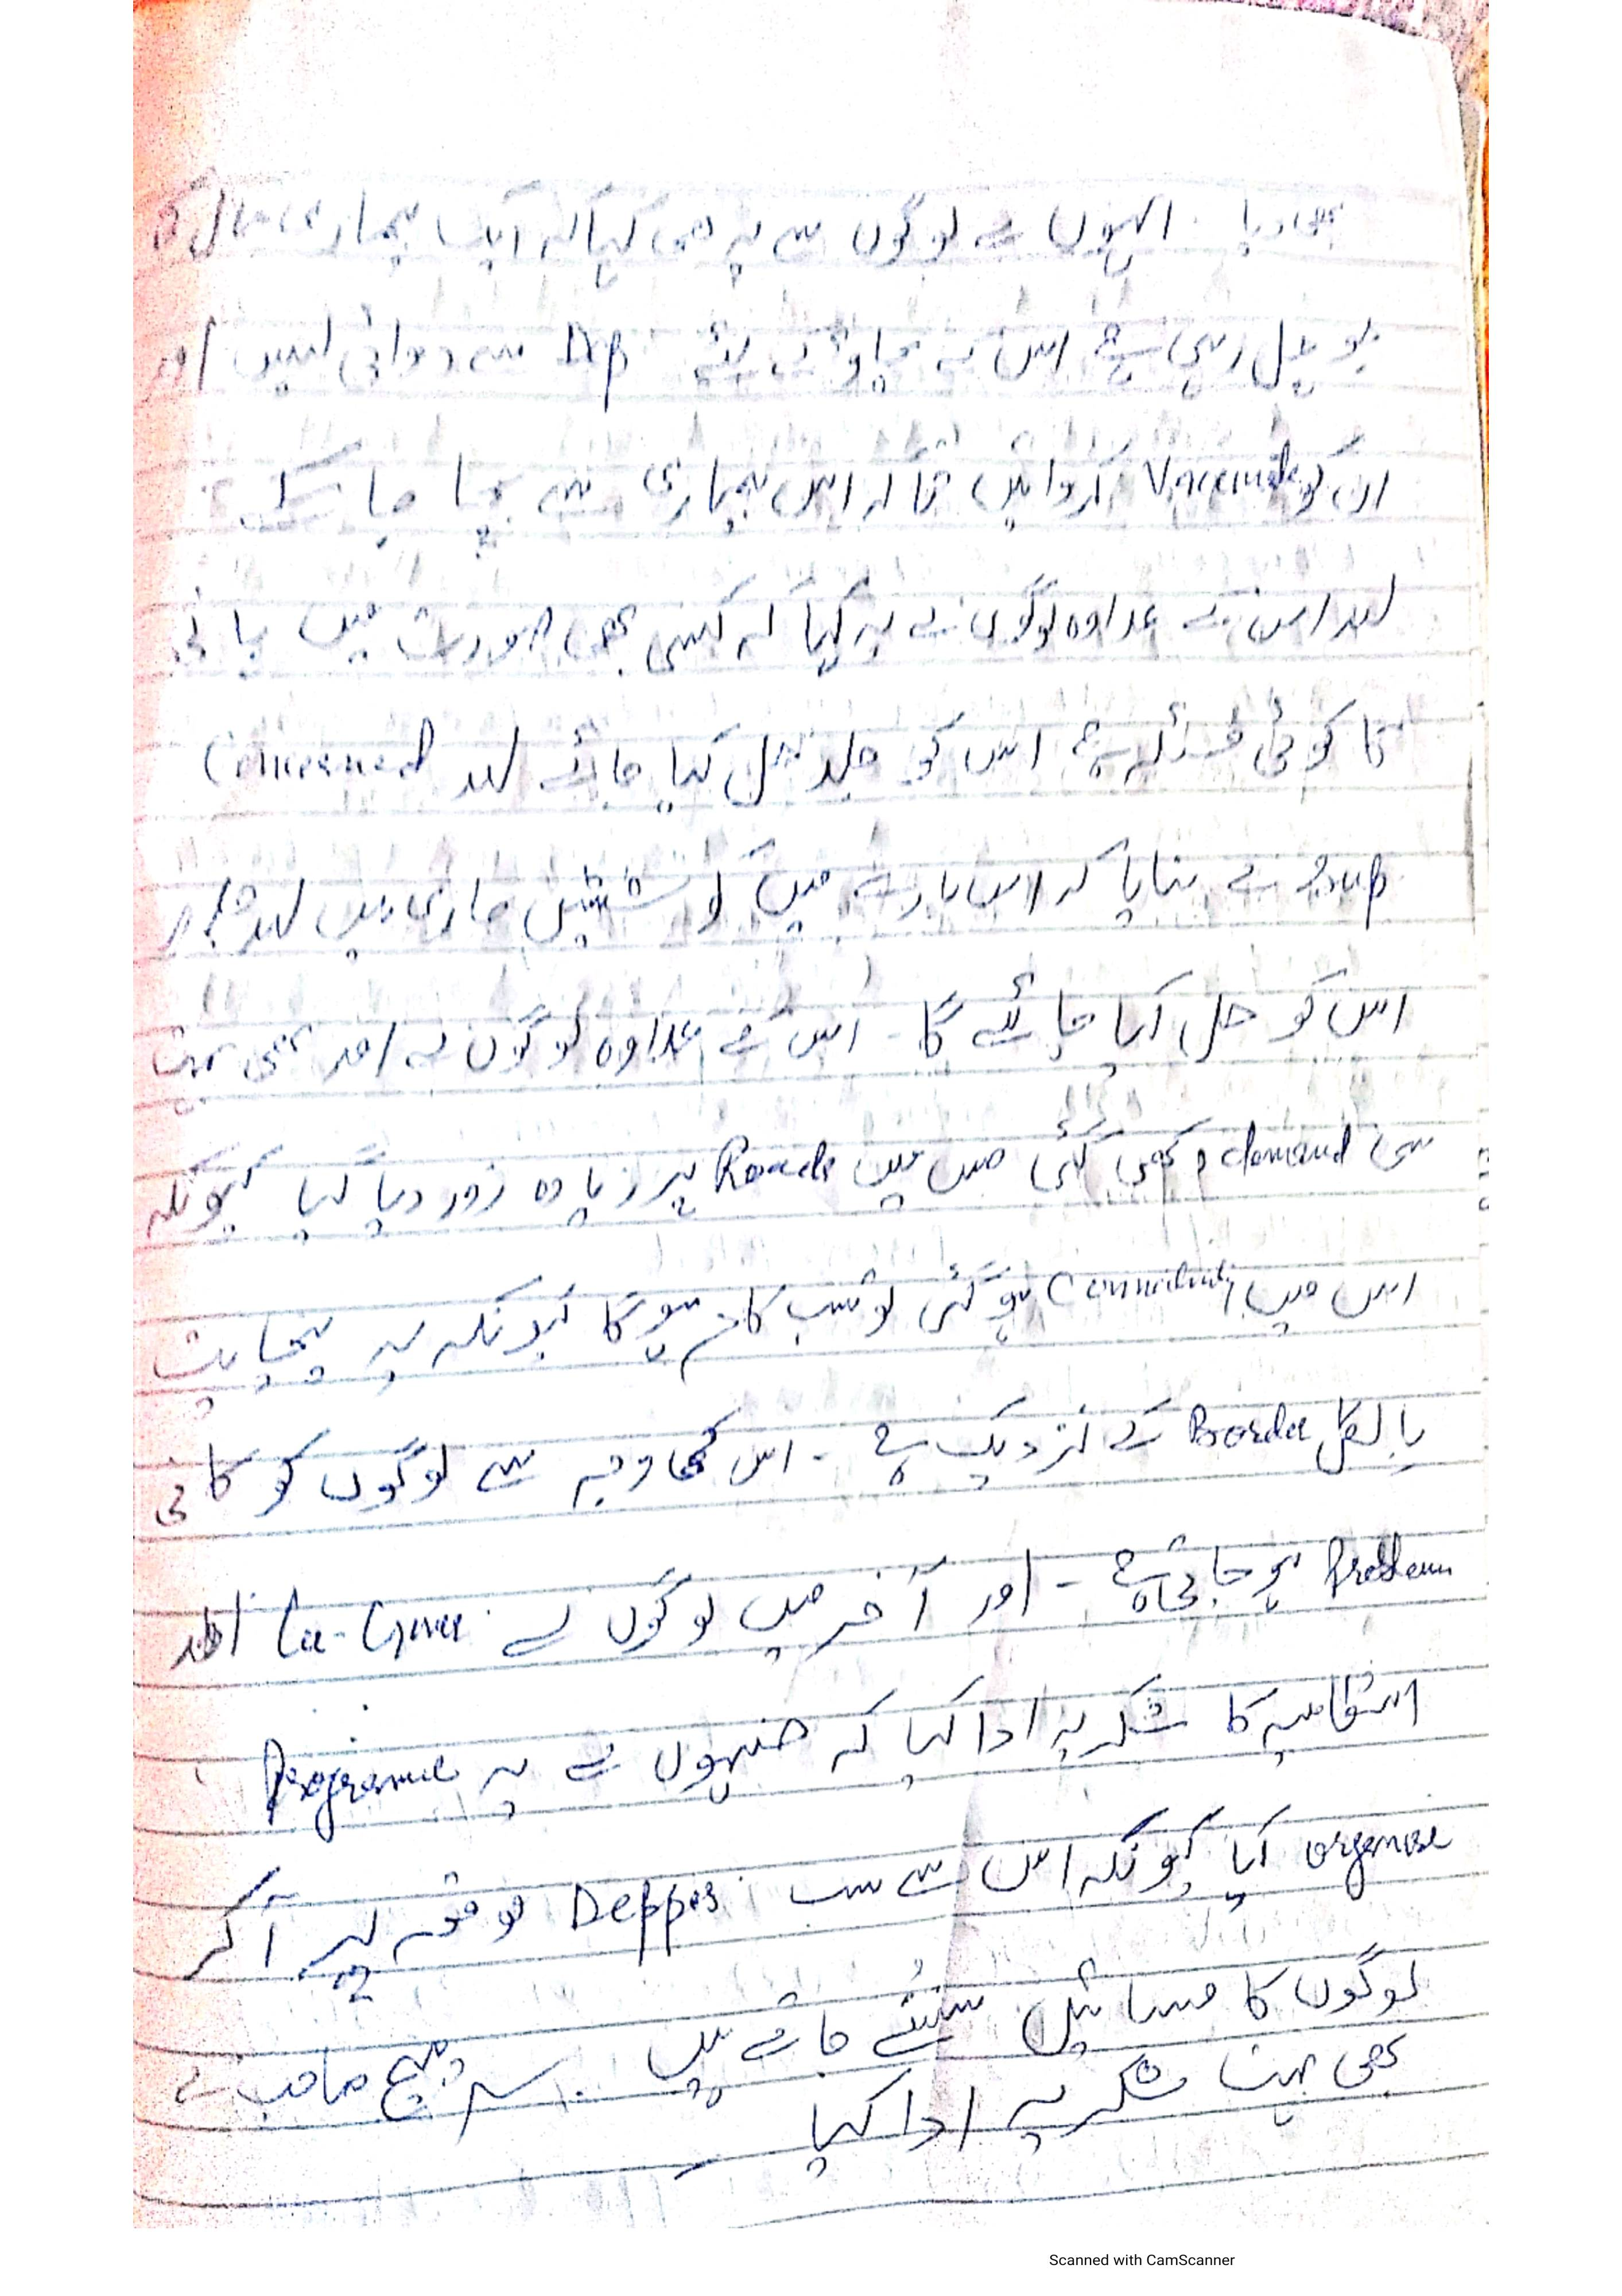 بھی دیا۔ انہوں نے لوگوں سے یہ بھی کہا کہ ایک بیماری
جو چل رہی ہے اس کے بچاؤ کے لئے Dep سے دوائی لیں اور
ان کو Vaccinate کروائیں تاکہ اس بیماری سے بچا جا سکے
اور اس کے علاوہ لوگوں نے یہ کہا کہ کسی بھی صورت میں پانی
کا کوئی مسئلہ ہے اس کو جلد حل کیا جائے اور Concerned
Dep نے بتایا کہ اس بارے میں کوششیں جاری ہیں اور
اس کو حل کیا جائے گا۔ اس کے علاوہ لوگوں نے اور بھی بہت
سی demand رکھی گئی جس میں Roads پر زیادہ زور دیا گیا کیونکہ
اس میں Connectivity ہو گئی تو سب کام ہوگا کیونکہ یہ پنچایت
بالکل Border کے نزدیک ہے۔ اس کی وجہ سے لوگوں کو کافی
Problem ہو جاتی ہے۔ اور آخر میں لوگوں نے اور
انتظامیہ کا شکریہ ادا کیا کہ جنہوں نے یہ Programme
organise کیا کیونکہ اس سے سب Deppts موقعہ پر آکر
لوگوں کا مسائل سنتے جاتے ہیں۔ سرپنچ صاحب نے
بھی بہت شکریہ ادا کیا
Scanned with CamScanner